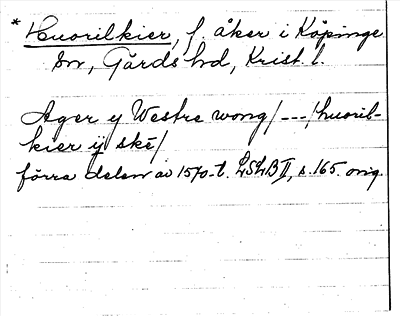 * Huorilkier, f. åker i Köpinge
sn, Gärds hd, Krist. l.
Ager y Westre wong/---/huoril-
kier ÿ skē/
förra delen av 1570-t. LSLB II, s. 165. orig.